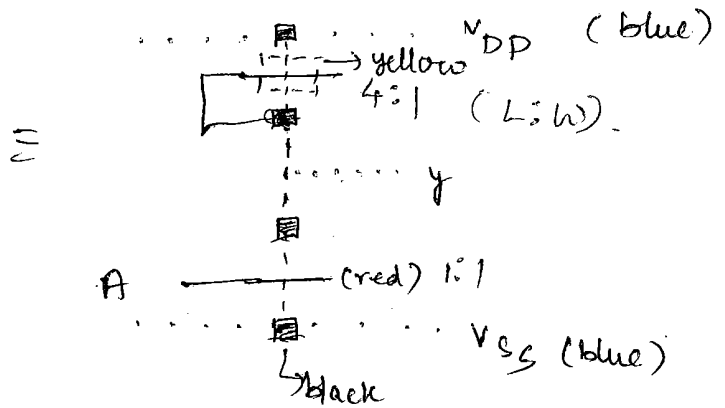 VDD (blue)
yellow
4:1 (L:W).
y
A (red) 1:1
VSS (blue)
black